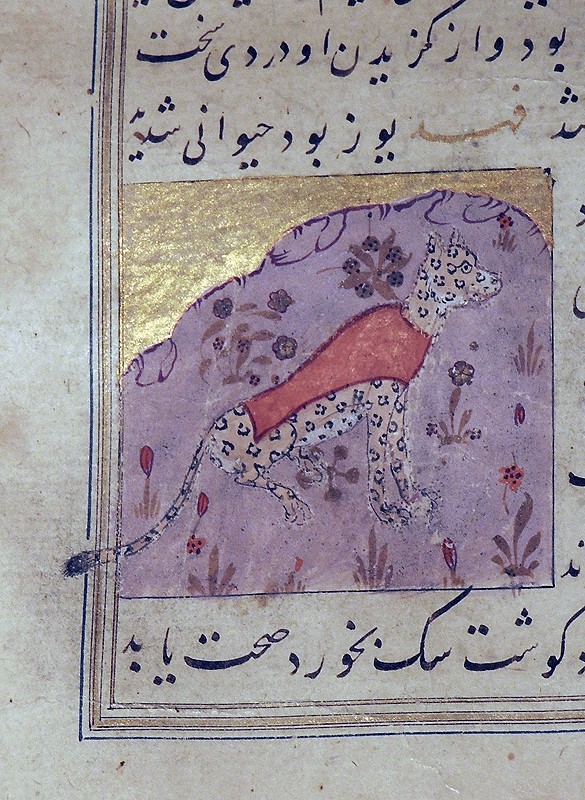 بود و از گزیدن او دردی سخت
شد فهد یوز بود حیوانی شدید
کوشت سک بخورد صحت یابد